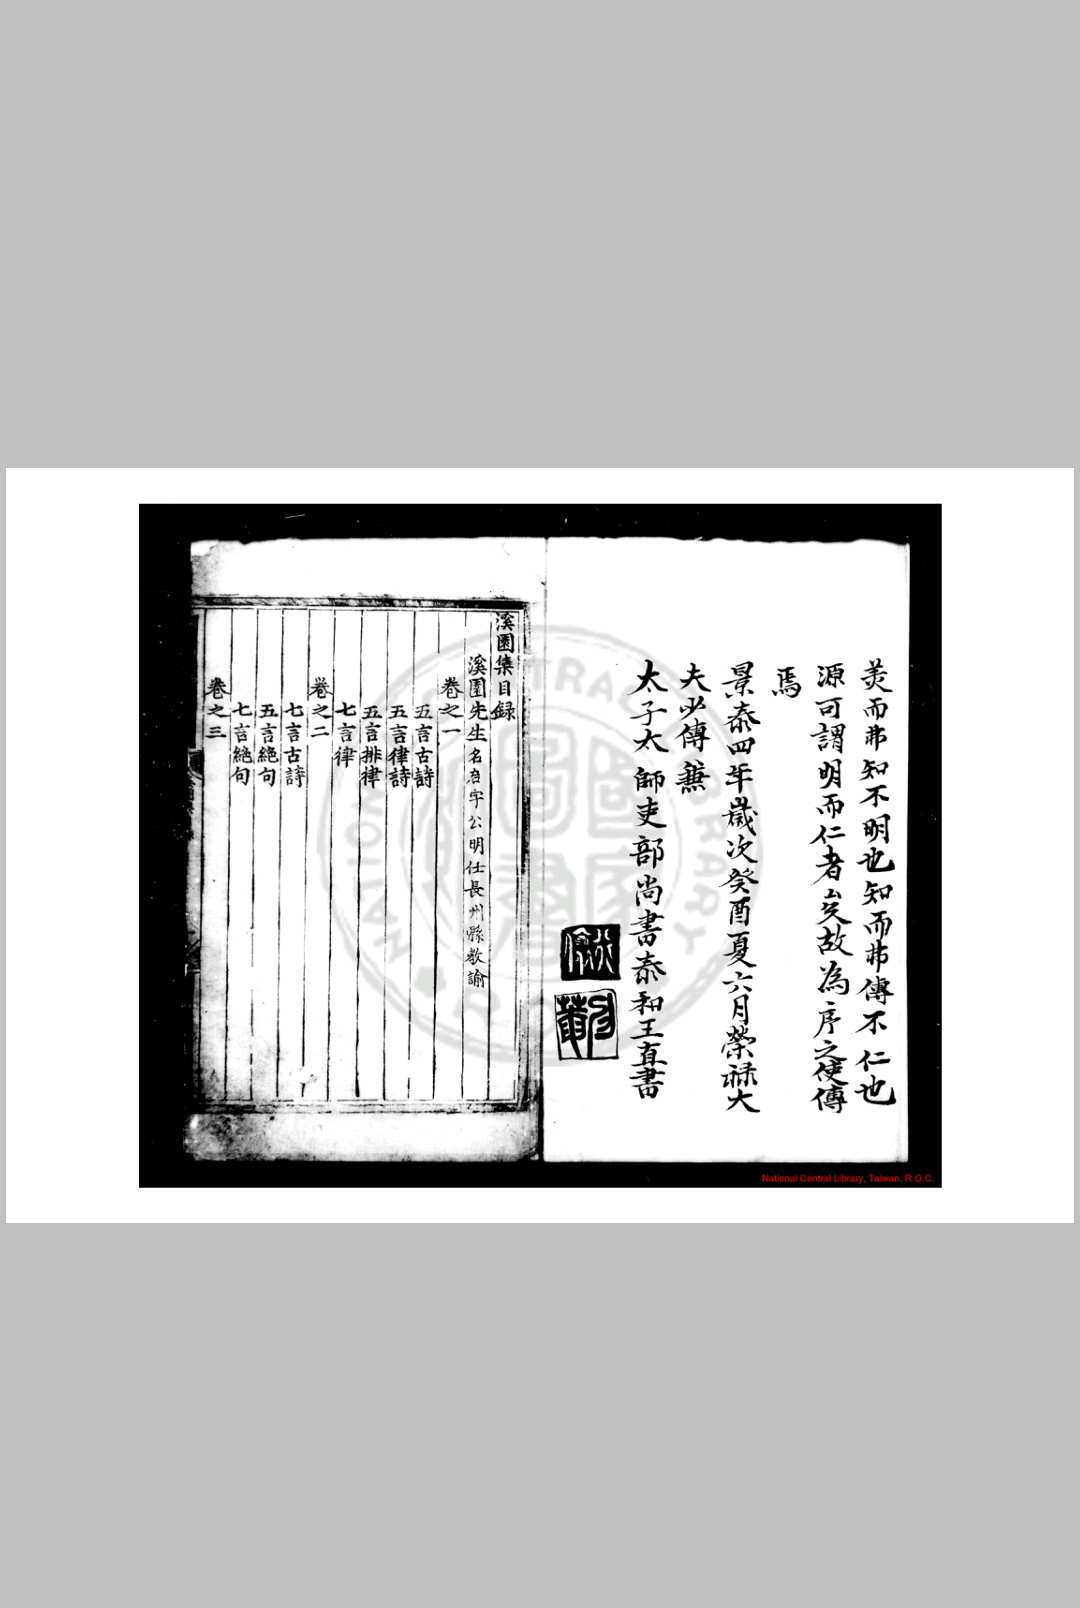 美而弗知不明也知而弗傳不仁也
源可謂明而仁者矣故為序之使傳
焉
景泰四年歲次癸酉夏六月榮祿大
夫少傅兼
太子太師吏部尚書泰和王直書
溪園集目錄
溪園先生名啓字公明任長州縣教諭
卷之一
五言古詩
五言律詩
五言排律
七言律
卷之二
七言古詩
五言絕句
七言絕句
卷之三
NATIONAL CENTRAL LIBRARY
National Central Library, Taiwan, R.O.C.